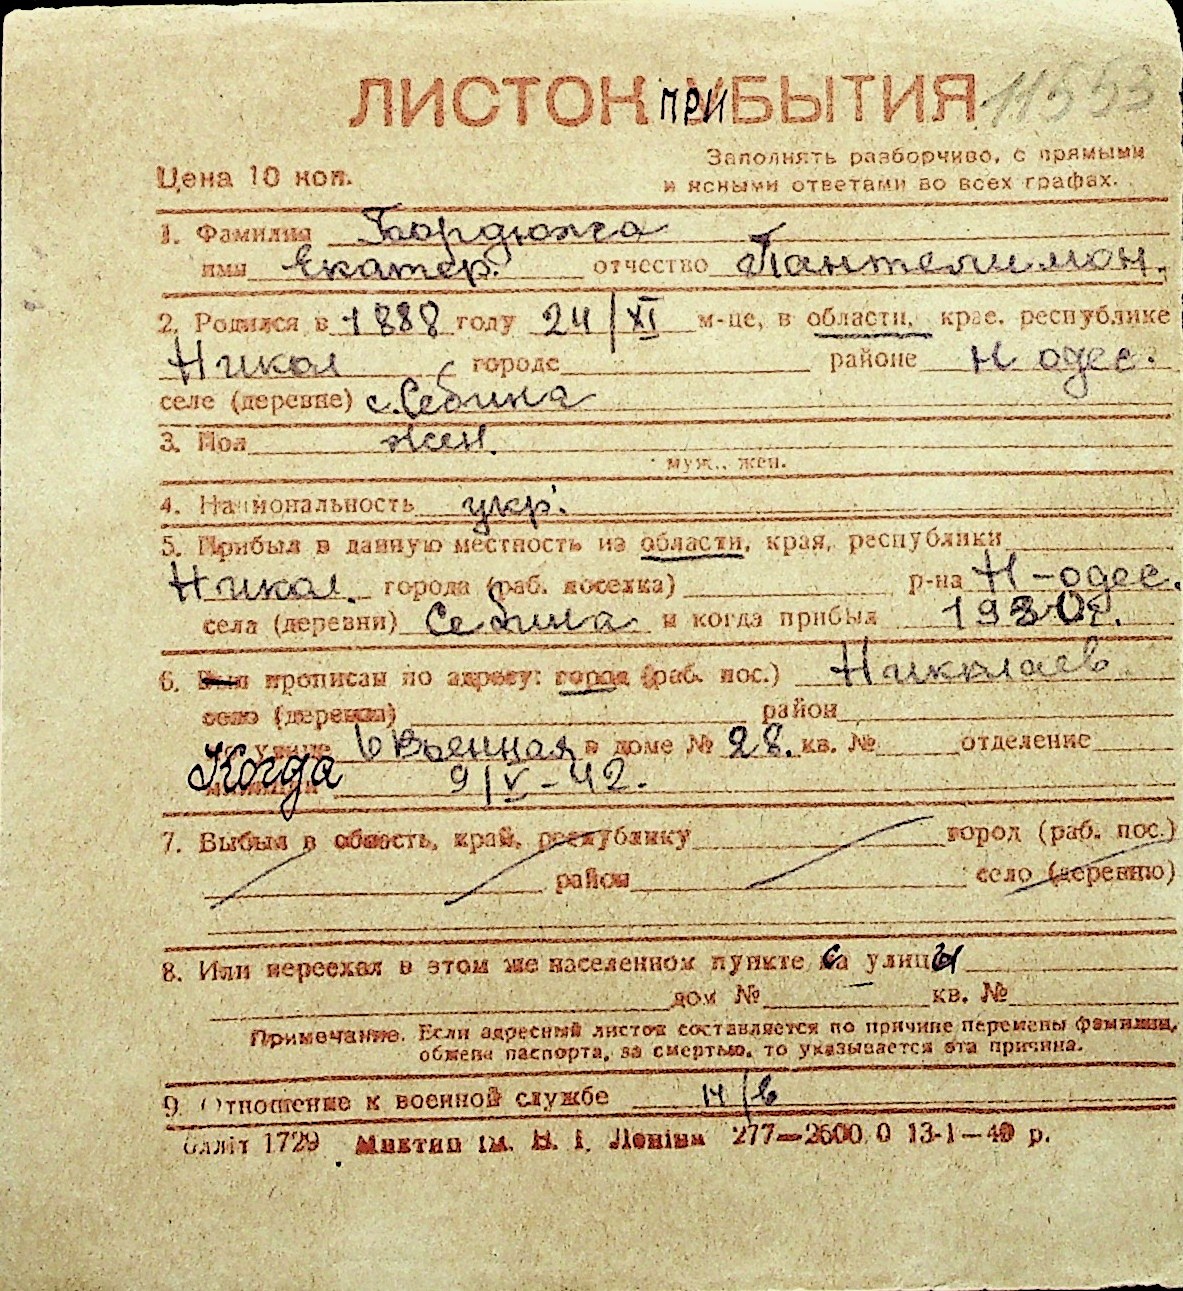 ЛИСТОК ПРИБЫТИЯ 11553
Цена 10 коп.
Заполнять разборчиво, с прямыми
и ясными ответами во всех графах.
1. Фамилия Бордюжа
имя Екатер. отчество Пантелимон.
2. Родился в 1888 году 24/XI м-це, в области, крае, республике
Никол городе районе Н одес.
селе (деревне) с. Себина
3. Пол жен.
муж., жен.
4. Национальность укр.
5. Прибыл в данную местность из области, края, республики
Никол. города (раб. поселка) р-на Н-одес.
села (деревни) Себина и когда прибыл 1930 г.
6. Был прописан по адресу: город (раб. пос.) Николаев
село (деревня) район
по улице 6 Военная в доме № 28. кв. № отделение
Когда милиции 9/V-42.
7. Выбыл в область, край, республику город (раб. пос.)
район село (деревню)
8. Или переехал в этом же населенном пункте са улицы
дом № кв. №
Примечание. Если адресный листок составляется по причине перемены фамилии,
обмена паспорта, за смертью, то указывается эта причина.
9. Отношение к военной службе н/в
бліт 1729 Миктип ім. В. І. Леніна 277—2600.0 13-1—40 р.